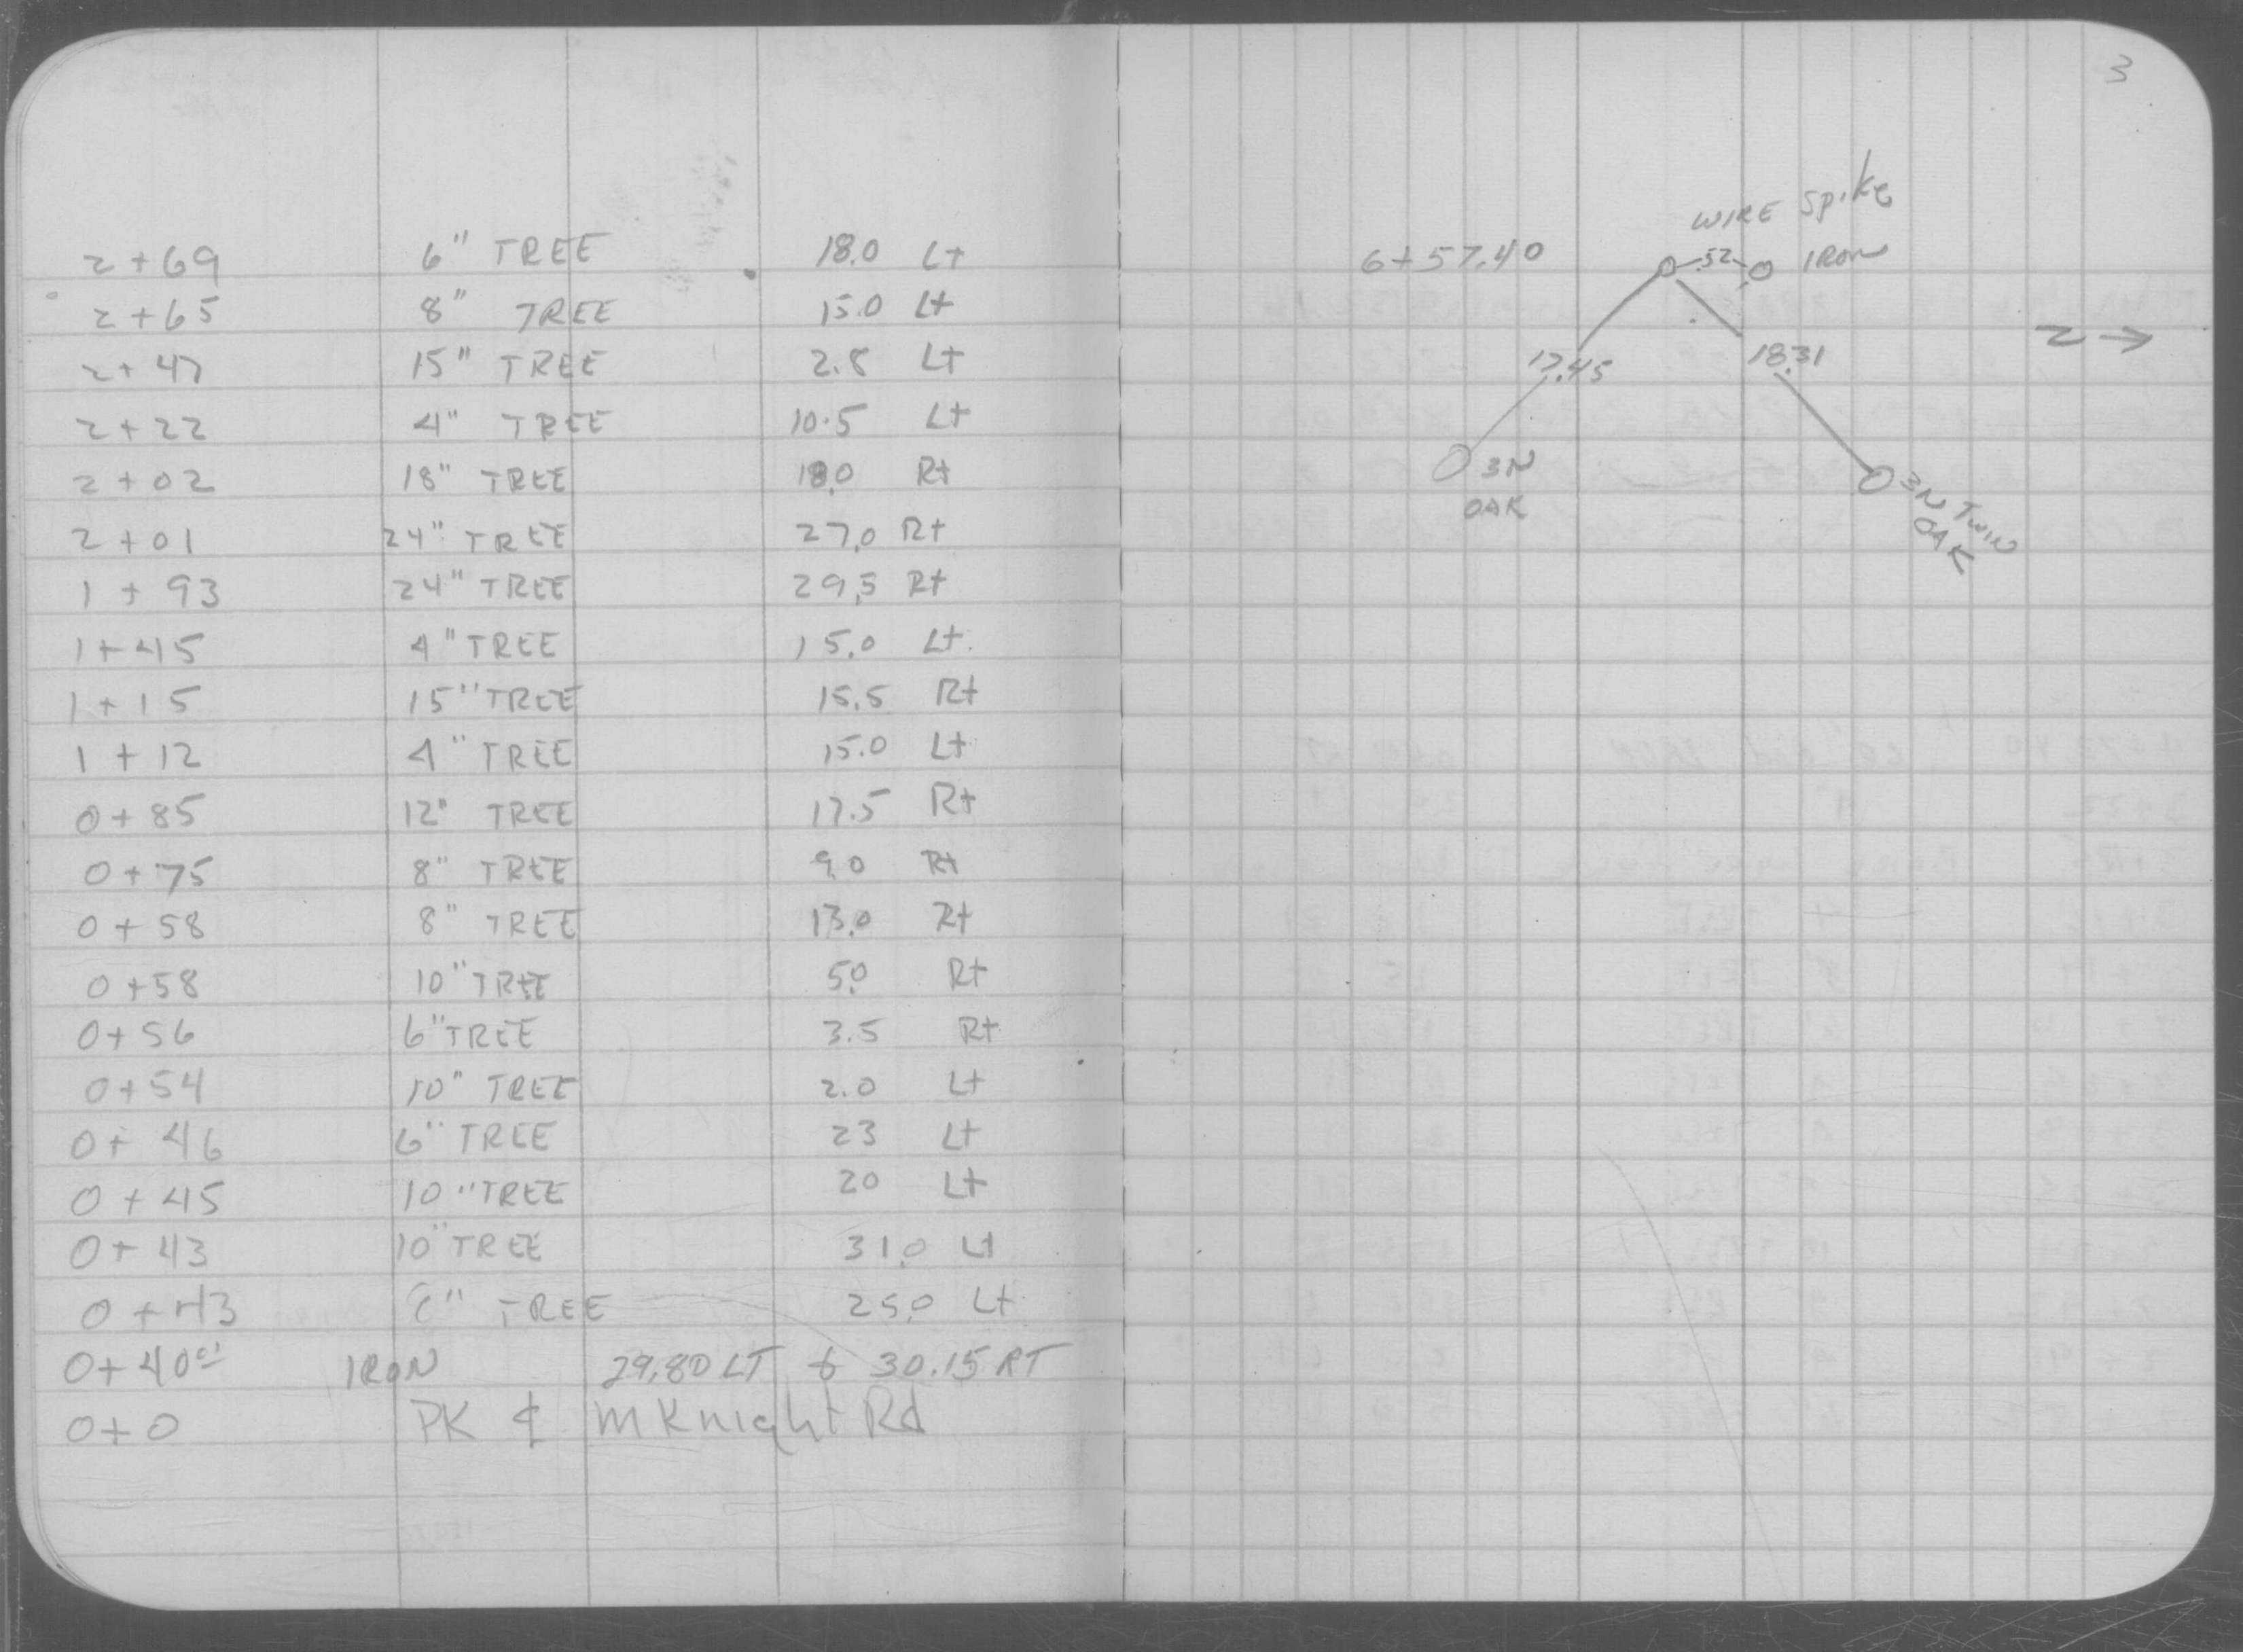 2+69 6" TREE 18.0 Lt
2+65 8" TREE 15.0 Lt
2+47 15" TREE 2.8 Lt
2+22 4" TREE 10.5 Lt
2+02 18" TREE 18.0 Rt
2+01 24" TREE 27.0 Rt
1+93 24" TREE 29.5 Rt
1+45 4" TREE 15.0 Lt.
1+15 15" TREE 15.5 Rt
1+12 4" TREE 15.0 Lt
0+85 12" TREE 17.5 Rt
0+75 8" TREE 9.0 Rt
0+58 8" TREE 13.0 Rt
0+58 10" TREE 5.0 Rt
0+56 6" TREE 3.5 Rt
0+54 10" TREE 2.0 Lt
0+46 6" TREE 23 Lt
0+45 10" TREE 20 Lt
0+43 10" TREE 31.0 Lt
0+43 TREE 25.0 Lt
0+40 IRON 29.80 LT & 30.15 RT
0+0 PK ₵ McKnight Rd
3
WIRE Spike
6+57.40 .52 IRON
N →
17.45 18.31
3N OAK
3N TWIN OAK